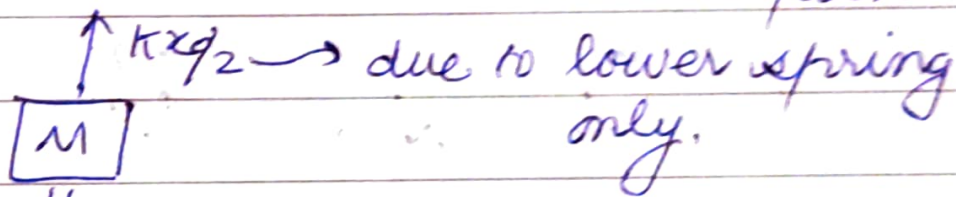 Kx₀/2 → due to lower spring
only.
M